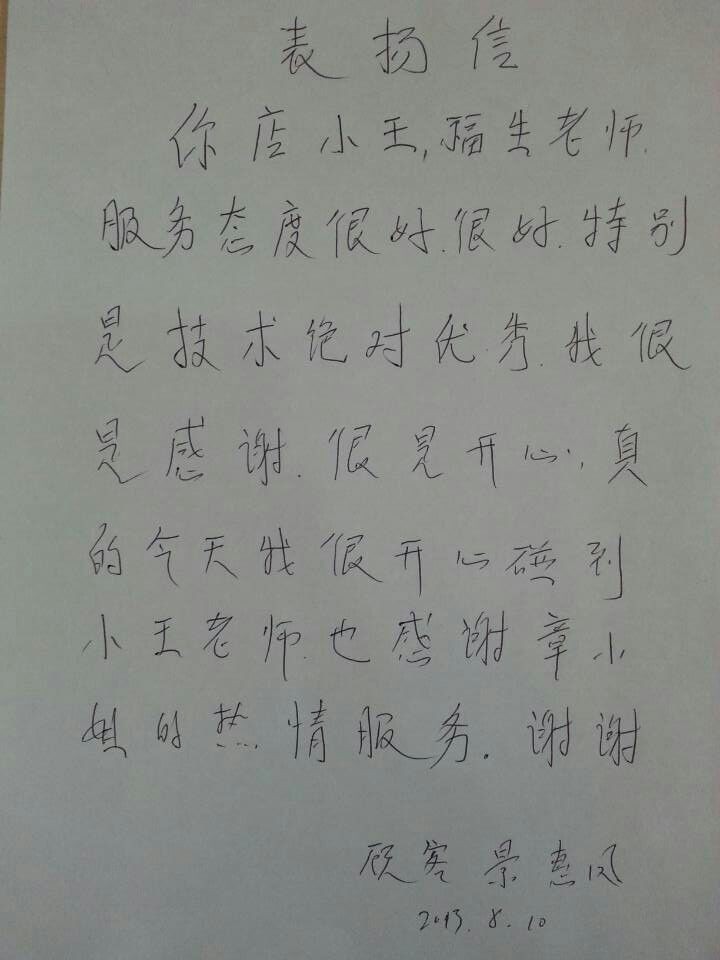 表扬信
你店小王,福生老师.
服务态度很好.很好.特别
是技术绝对优秀.我很
是感谢.很是开心,真
的今天我很开心碰到
小王老师.也感谢章小
姐的热情服务.谢谢
顾客 景惠凤
2013.8.10